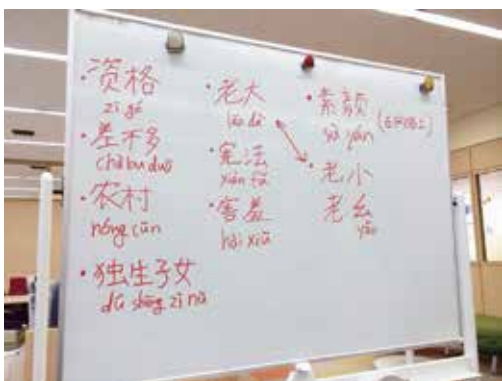 ·资格
zī gé
·差不多
chà bu duō
·农村
nóng cūn
·独生子女
dú shēng zǐ nǚ
·老大
lǎo dà
·宪法
xiàn fǎ
·害羞
hài xiū
·素颜
sù yán
·老小
老幺
yāo